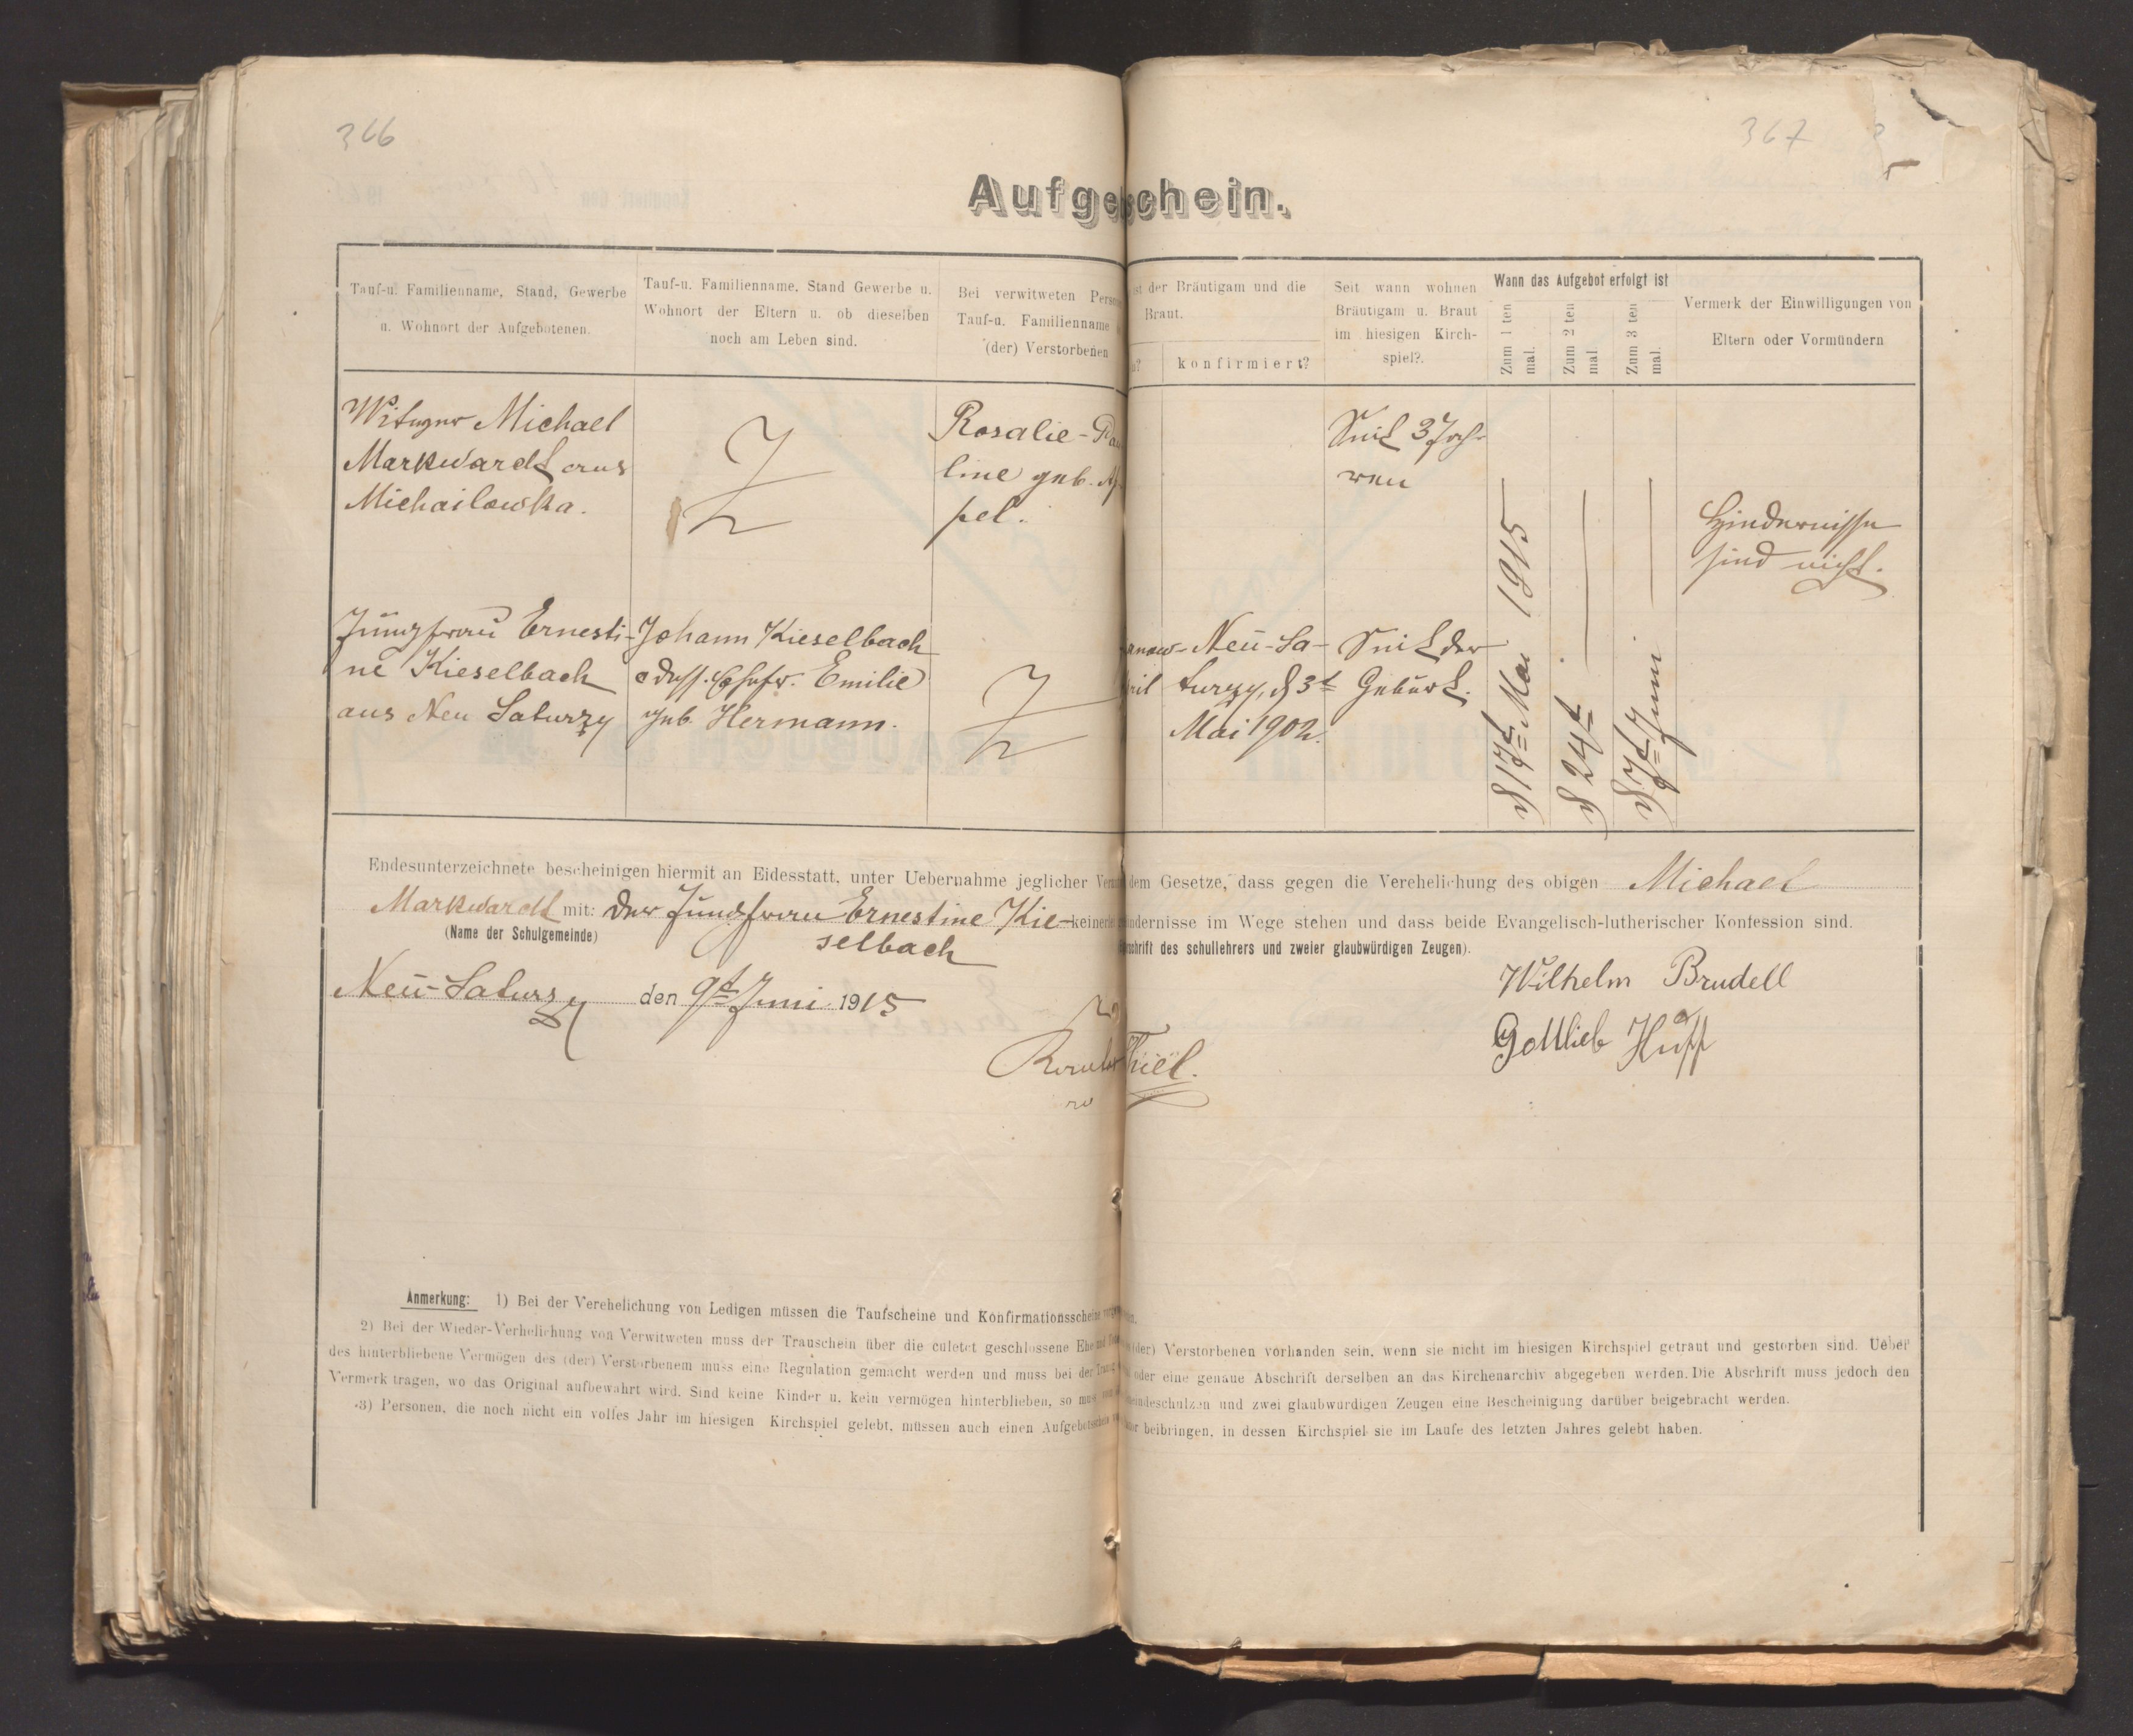 366
367
Aufge schein.
Tauf-u. Familienname, Stand, Gewerbe
u. Wohnort der Aufgebotenen.
Tauf-u. Familienname, Stand Gewerbe u.
Wohnort der Eltern u. ob dieselben
noch am Leben sind.
Bei verwitweten
Tauf-u. Familienname
(der) Verstorbenen
ist der Bräutigam und die
Braut.
konfirmiert?
Seit wann wohnen
Bräutigam u. Braut
im hiesigen Kirch-
spiel?.
Wann das Aufgebot erfolgt ist
Zum 1 ten
mal.
Zum 2 ten
mal.
Zum 3 ten
mal.
Vermerk der Einwilligungen von
Eltern oder Vormündern
Witwer Michael
Markwardt aus
Michailowka.
Rosalie-
line geb.
pel.
Seit 3 Jah-
ren
Hindernisse
sind nicht.
Jungfrau Ernesti-
ne Kieselbach
aus Neu Saturzy
Johann Kieselbach
u dess. Ehefr. Emilie
geb. Hermann.
Neu-Sa-
turzy, d 3t
Mai 1902.
Seit der
Geburt.
d 17t Mai 1915
d 24t
d 7t Juni
Endesunterzeichnete bescheinigen hiermit an Eidesstatt, unter Uebernahme jeglicher dem Gesetze, dass gegen die Verehelichung des obigen Michael
Markwardt mit: der Jungfrau Ernestine Kie- keinerlei ndernisse im Wege stehen und dass beide Evangelisch-lutherischer Konfession sind.
selbach
(Name der Schulgemeinde)
schrift des schullehrers und zweier glaubwürdigen Zeugen).
Neu-Saturzy den 9t Juni 1915
Wilhelm Brudell
Gottlieb Hüff
Thiel.
Anmerkung: 1) Bei der Verehelichung von Ledigen müssen die Taufscheine und Konfirmationsscheine
2) Bei der Wieder-Verhelichung von Verwitweten muss der Trauschein über die culetct geschlossene Ehe und (der) Verstorbenen vorhanden sein, wenn sie nicht im hiesigen Kirchspiel getraut und gestorben sind. Ueber
des hinterbliebene Vermögen des (der) Verstorbenem muss eine Regulation gemacht werden und muss bei der oder eine genaue Abschrift derselben an das Kirchenarchiv abgegeben werden. Die Abschrift muss jedoch den
Vermerk tragen, wo das Original aufbewahrt wird. Sind keine Kinder u. kein vermögen hinterblieben, so muss eindeschulzen und zwei glaubwürdigen Zeugen eine Bescheinigung darüber beigebracht werden.
3) Personen, die noch nicht ein volles Jahr im hiesigen Kirchspiel gelebt, müssen auch einen Aufgebotsschein beibringen, in dessen Kirchspiel sie im Laufe des letzten Jahres gelebt haben.